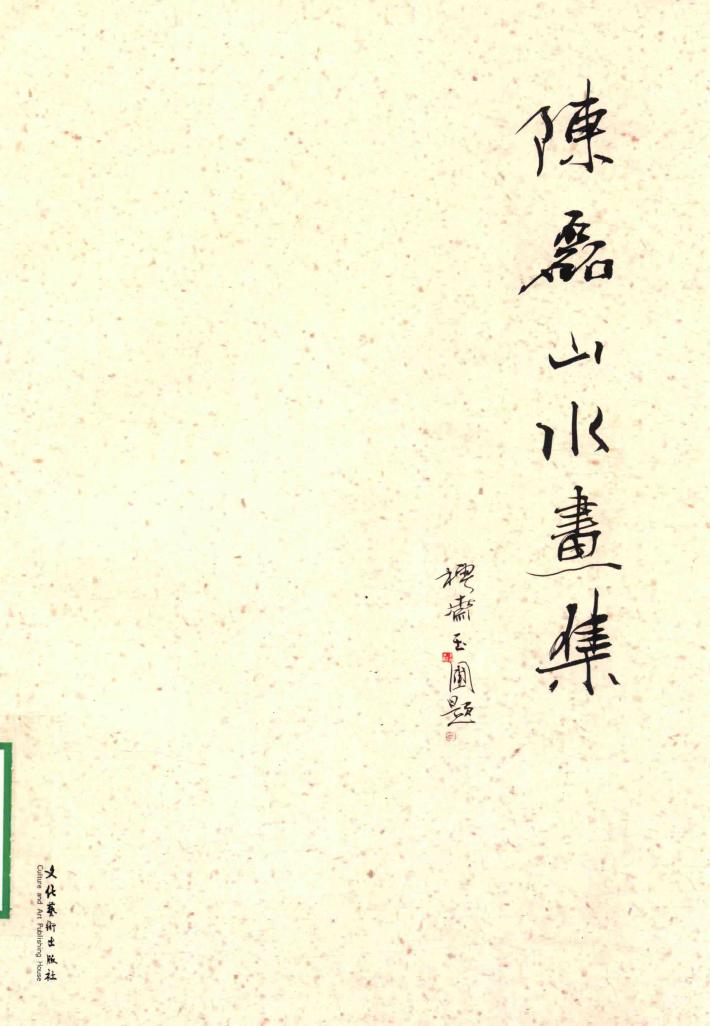 陳磊山水畫集
齋玉圃題
文化藝術出版社
Culture and Art Publishing House